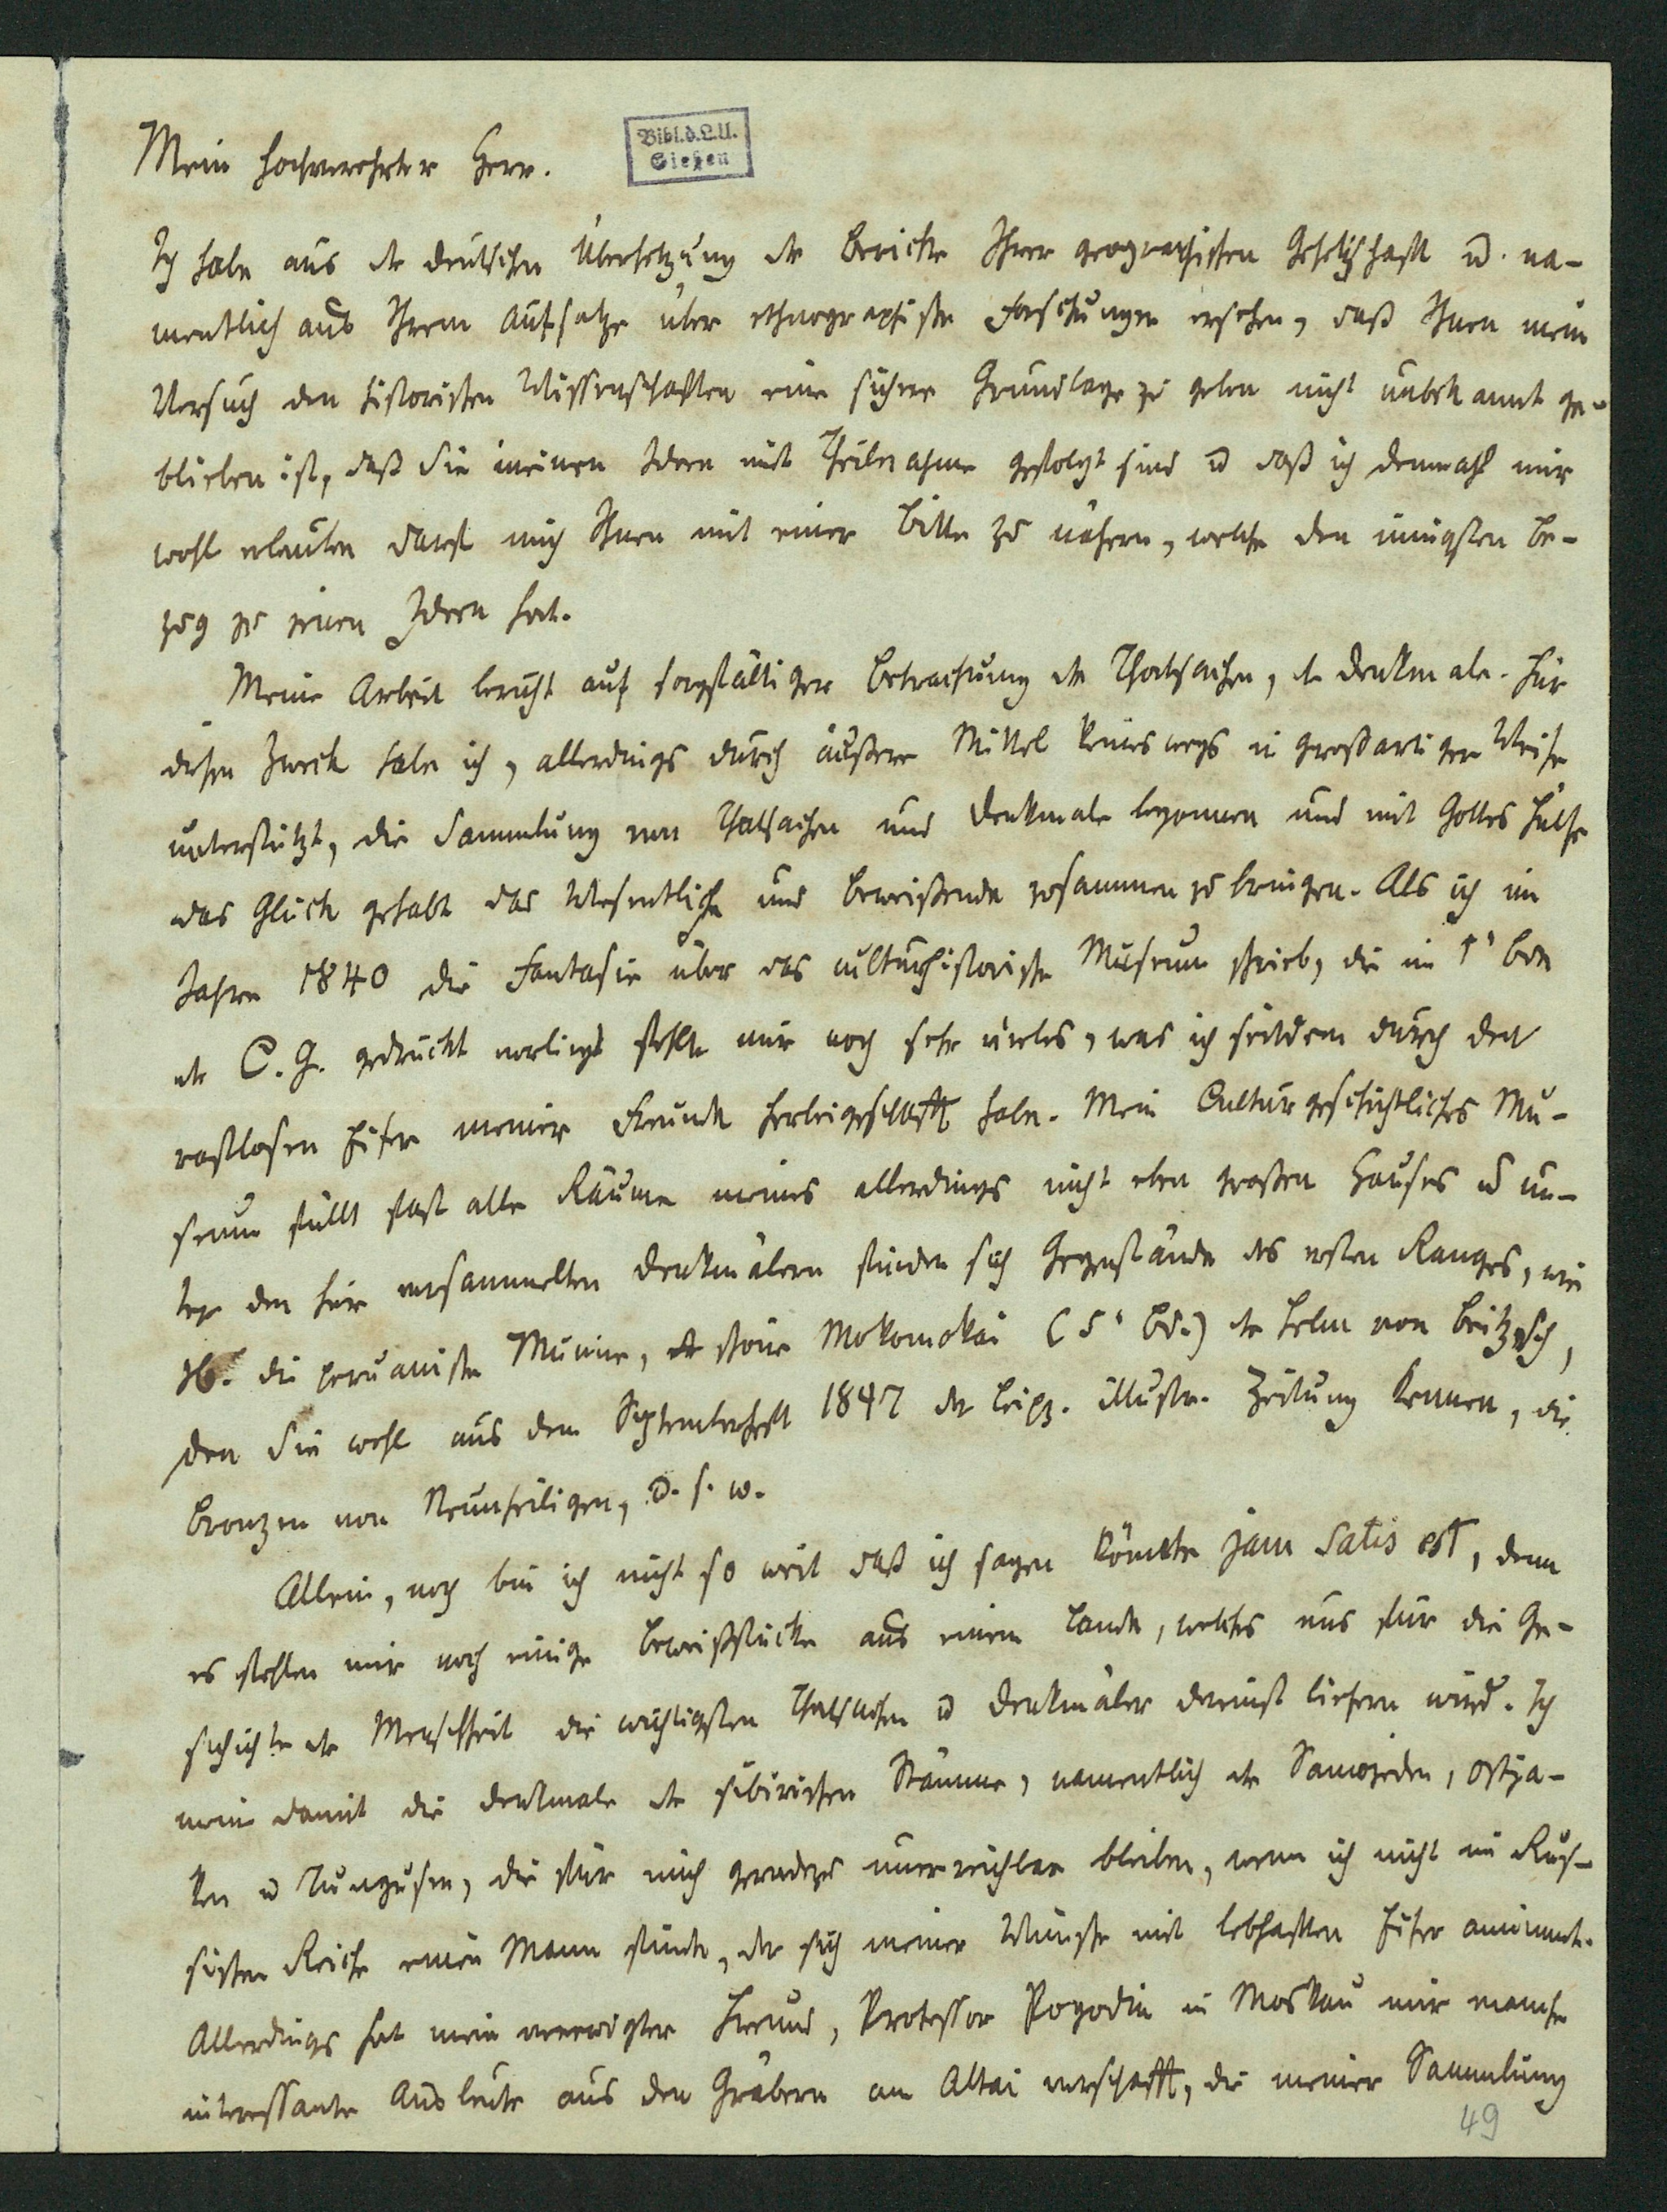 Mein hochverehrter Herr.
Bibl.d.L.U.
Gießen
Ich habe aus der deutschen Übersetzung der Berichte Ihrer geographischen Gesellschaft u. na-
mentlich aus Ihrem Aufsatze über ethnographische Forschungen ersehen, daß Ihnen mein
Versuch den historischen Wissenschaften eine sichere Grundlage zu geben nicht unbekannt ge-
blieben ist, daß Sie meinen Ideen mit Theilnahme gefolgt sind u daß ich demnach mir
wohl erlauben darf mich Ihnen mit einer Bitte zu nähern, welche den innigsten Be-
zug zu jenen Ideen hat.
Meine Arbeit beruht auf sorgfältiger Betrachtung der Thatsachen, der Denkmale. Für
diesen Zweck habe ich, allerdings durch äußere Mittel keineswegs in großartiger Weise
unterstützt, die Sammlung von Thatsachen und Denkmale begonnen und mit Gottes Hülfe
das Glück gehabt das Wesentliche und Beweisende zusammen zu bringen. Als ich im
Jahre 1840 die Fantasie über das culturhistorische Museum schrieb, die im 1' Bde
der C. G. gedruckt vorliegt fehlte mir noch sehr vieles, was ich seitdem durch den
rastlosen Eifer meiner Freunde herbeigeschafft habe. Mein Culturgeschichtliches Mu-
seum füllt fast alle Räume meines allerdings nicht eben großen Hauses u un-
ter den hier versammelten Denkmälern finden sich Gegenstände des ersten Ranges, wie
zB. die peruanische Mumie, der schöne Mokomokai (5' Bd.) der Helm von Britzsch,
den Sie wohl aus dem Septemberheft 1847 der Leipz. illustr. Zeitung kennen, die
Bronzen von Neunheiligen, u. s. w.
Allein, noch bin ich nicht so weit daß ich sagen könnte jam satis est, denn
es fehlen mir noch einige Beweisstücke aus einem Lande, welches uns für die Ge-
schichte der Menschheit die wichtigsten Thatsachen u Denkmäler dereinst liefern wird. Ich
meine damit die Denkmale der sibirischen Stämme, namentlich der Samojeden, Ostja-
ken u Tungusen, die für mich geradezu unerreichbar bleiben, wenn ich nicht im Rus-
sischen Reiche einen Mann finde, der sich meiner Wünsche mit lebhaften Eifer annimmt.
Allerdings hat mein verewigter Freund, Professor Pogodin in Moskau mir manche
interessante Ausbeute aus den Gräbern am Altai verschafft, die meiner Sammlung
49